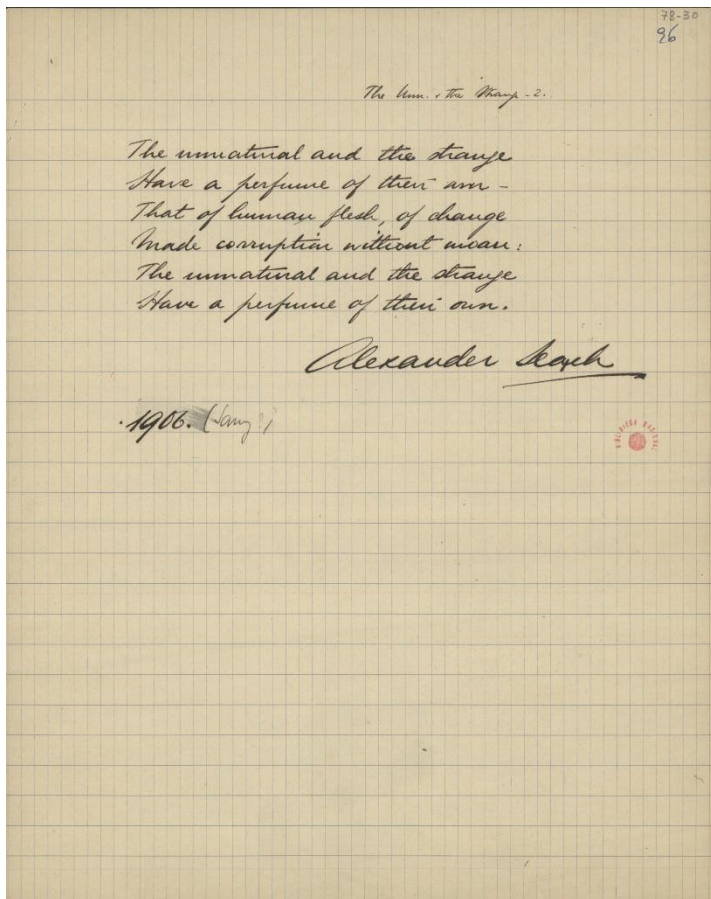 78-30
96
The Unn. & the Strange - 2.
The unnatural and the strange
Have a perfume of their own -
That of human flesh, of change
Made corruption without moan:
The unnatural and the strange
Have a perfume of their own.
Alexander Search
1906.